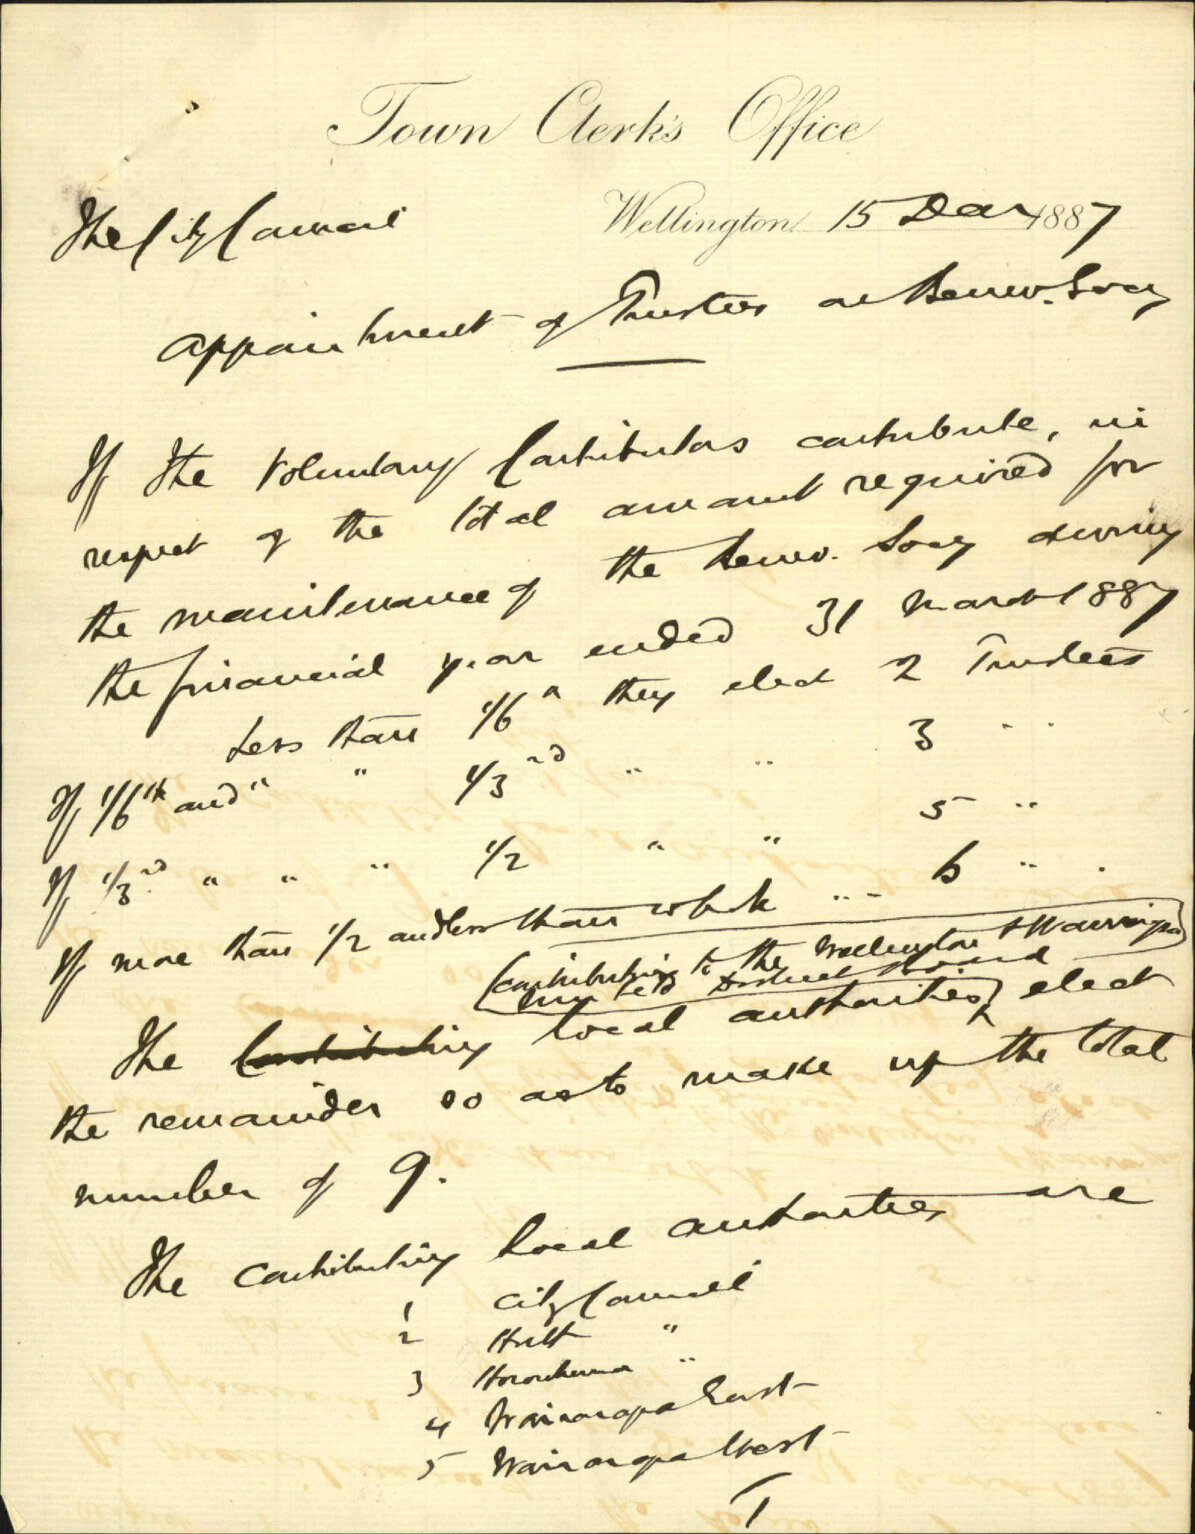 Town Clerk's Office
The City Council
Wellington 15 Dec 1887
Appointment of Trustees as Benev. Socy
If the Voluntary Contributors contribute, in
respect of the total amount required for
the maintenance of the Benev. Socy during
the financial year ended 31 March 1887
Less than 1/6th they elect 2 Trustees
If 1/6th and " " 1/3rd " " 3 " "
If 1/3rd " " " 1/2 " " 5 "
If more than 1/2 and less than whole ... 6 " "
contributing to the Wellington & Wairarapa
United District Board
The Contributing local authorities elect
the remainder so as to make up the total
number of 9.
The contributing local authorities are
1 City Council
2 Hutt "
3 Horowhenua "
4 Wairarapa East
5 Wairarapa West